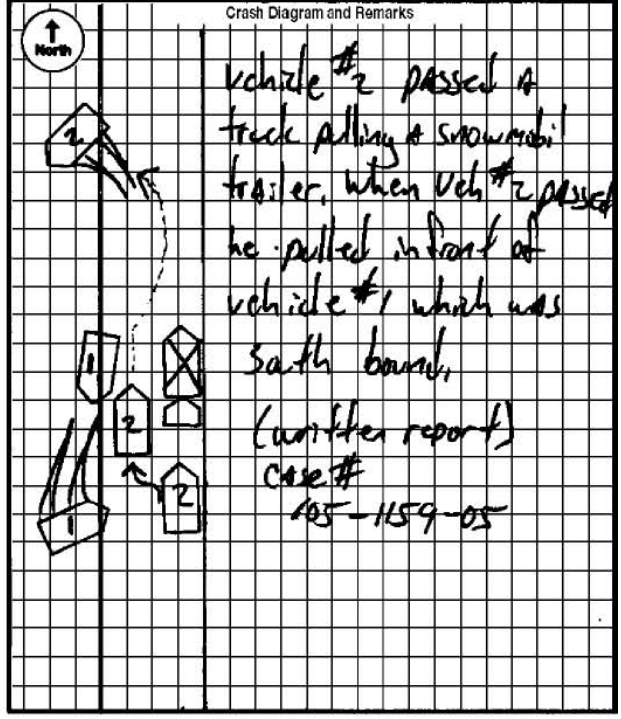 Crash Diagram and Remarks
North
vehicle #2 passed A
truck pulling A snowmobil
trailer, when Veh #2 passed
he pulled in front of
vehicle #1 which was
South bound,
(written report)
case #
105-1159-05
2
1
2
2
1